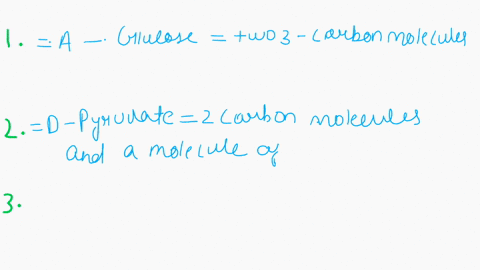 1. = A - Glucose = two 3 - carbon molecules
2. = D - Pyruvate = 2 carbon molecules
and a molecule of
3.